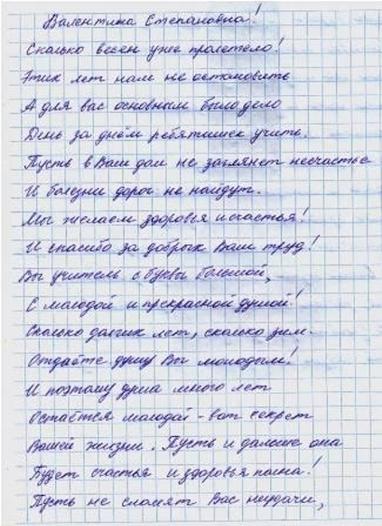 Валентина Степановна!
Сколько весен уже пролетело!
Этих лет нам не остановить
А для вас основным было дело
День за днём ребятишек учить.
Пусть в Ваш дом не заглянет несчастье
И болезни дорог не найдут.
Мы желаем здоровья и счастья!
И спасибо за добрый Ваш труд!
Вы учитель с буквы большой,
С молодой и прекрасной душой!
Сколько долгих лет, сколько зим.
Отдаёте душу Вы молодым!
И поэтому душа много лет
Остаётся молодой - вот секрет
Вашей жизни. Пусть и дальше она
Будет счастья и здоровья полна!
Пусть не сломят Вас неудачи,